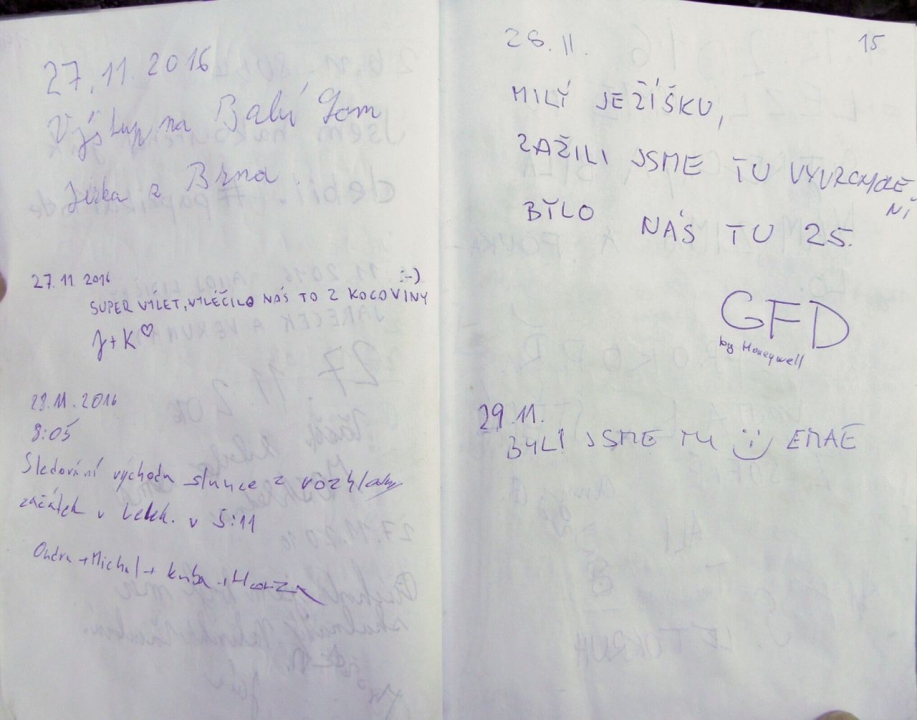 27.11 2016
Výstup na Babí lom
Jirka z Brna
27.11 2016
:-)
SUPER VÝLET, VYLÉČILO NÁS TO Z KOCOVINY
J+K♡
28.11.2016
8:05
Sledování východu slunce z rozhledny
začátek v Lelek. v 5:11
Ondra + Michal + kuba + Honza
15
28.11.
MILÝ JEŽÍŠKU,
ZAŽILI JSME TU VYVRCHOLE
NÍ
BYLO NÁS TU 25.
GFD
by Honeywell
29.11.
BYLI JSME TU